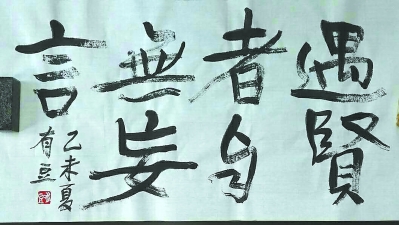 遇賢
者自
無妄
言
乙未夏
有豆